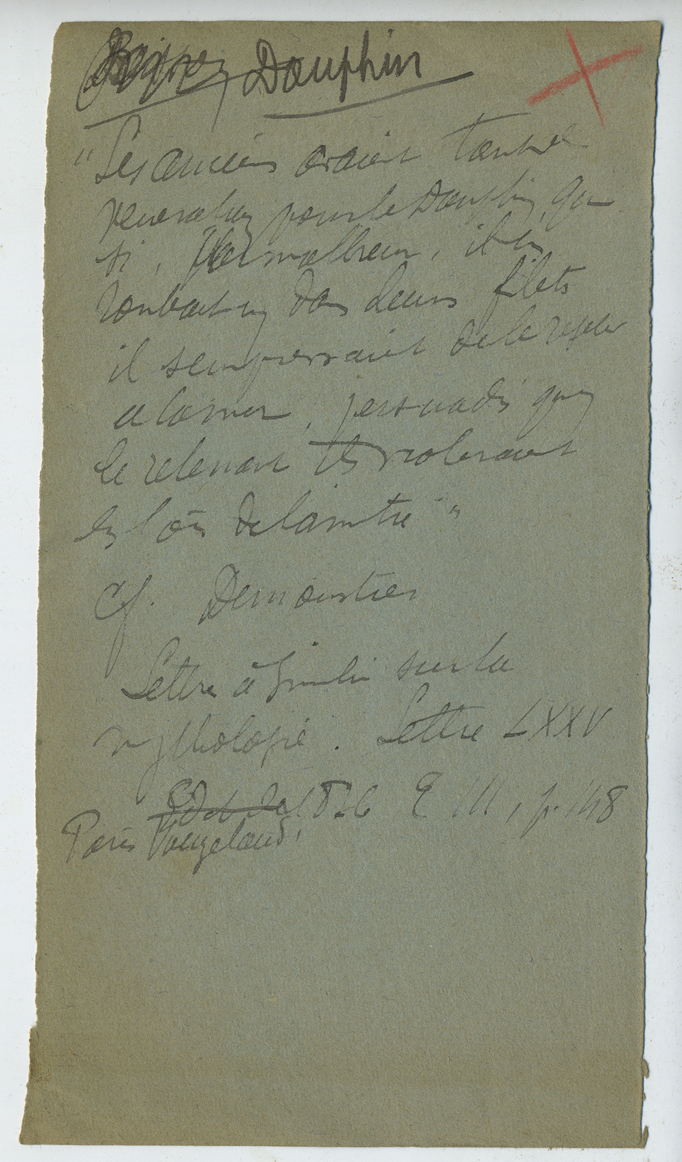 Dauphin
"Les anciens avaient tant de
veneration pour le Dauphin, que
si, par malheur, il en
tombait un dans leurs filets
il s'empressaient de le rejeter
a la mer, persuadés qu'en
le retenant ils violeraient
les lois de l'amitié"
Cf. Demoustier
Lettre à Emilie sur la
mythologie. Lettre LXXV
1826 T III, p. 148
Paris